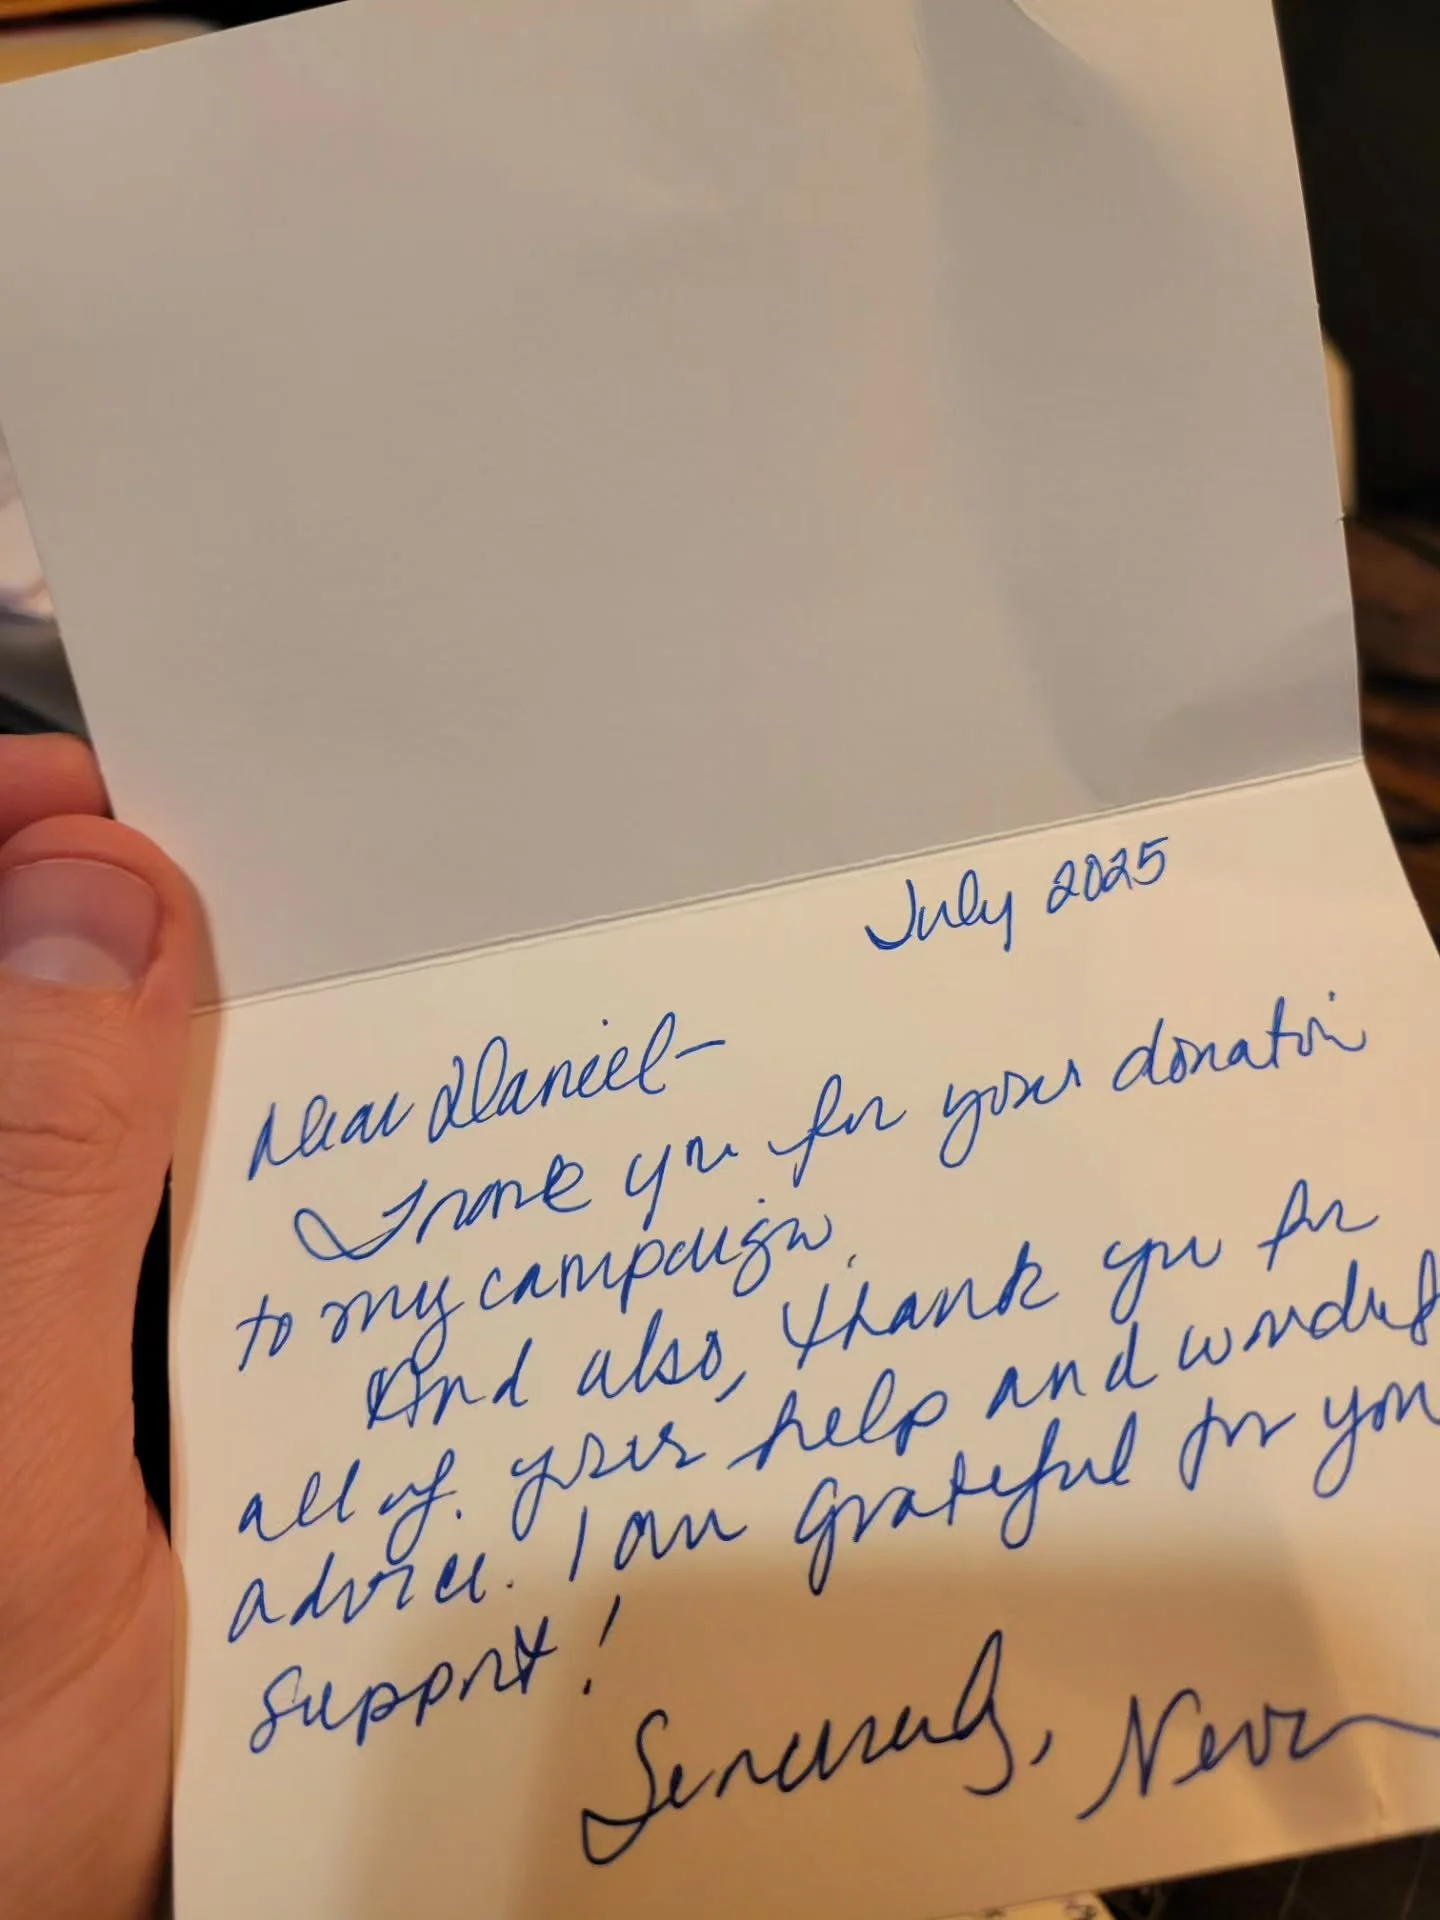 July 2025
Dear Daniel-
Thank you for your donation
to my campaign.
And also, thank you for
all of your help and wonderf
advice. I am grateful for you
support!
Sincerely,